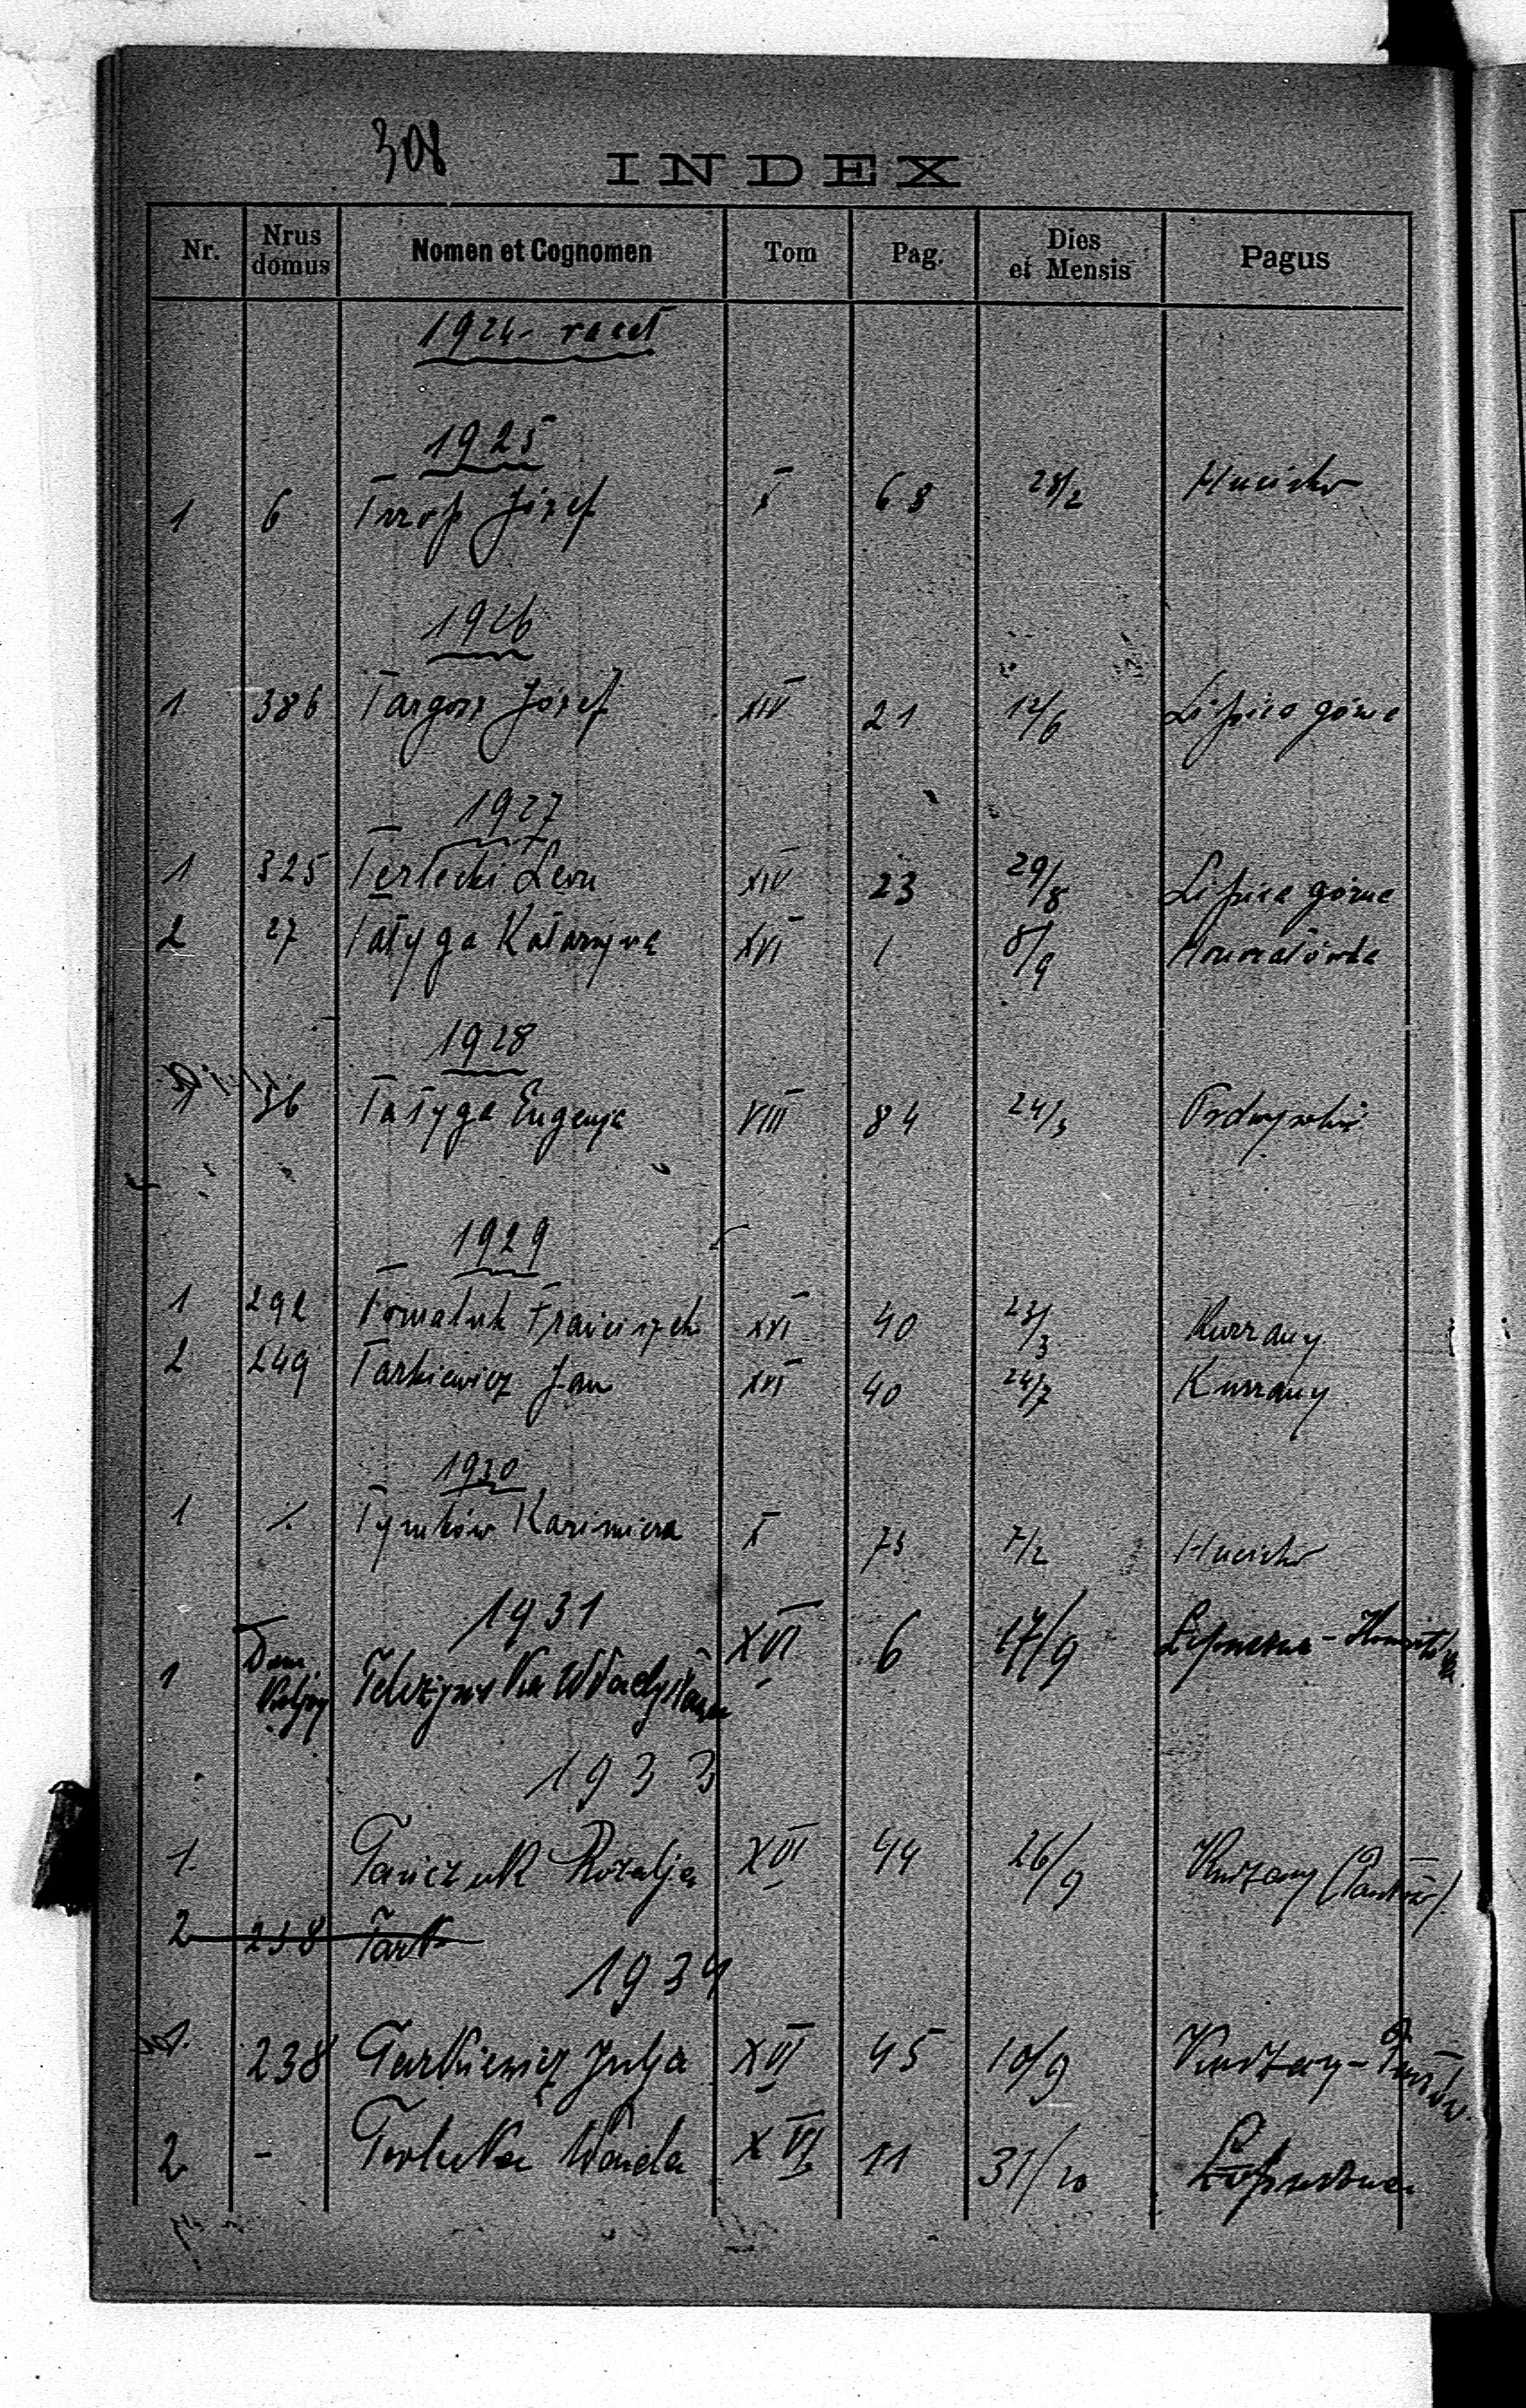 308
INDEX
Nr. Nrus domus Nomen et Cognomen Tom Pag. Dies et Mensis Pagus
1924 - vacat
1925
1 6 Józef X 68 28/2 Hucisko
1926
1 386 Targosz Józef XIV 21 12/6 Lipica górna
1927
1 325 Terlecki Leon XIV 23 29/8 Lipica górna
2 27 Tatyga Katarzyna XVI 1 8/9
1928
36 Tatyga Eugenja VIII 84 24/3
1929
1 292 XVI 40 23/3 Kurzany
2 249 Tarkiewicz Jan XVI 40 24/7 Kurzany
1930
1 Kazimiera X 73 7/2 Hucisko
1931
1 Dom Kolejowy Władysława XVI 6 17/9
1933
1. Tańczuk Rozalja XVI 44 26/9 Kurzany
2 238 Tark
1934
1. 238 Tarkiewicz Julja XVI 45 10/9 Kurzany -
2 - Wanda XVI 11 31/10